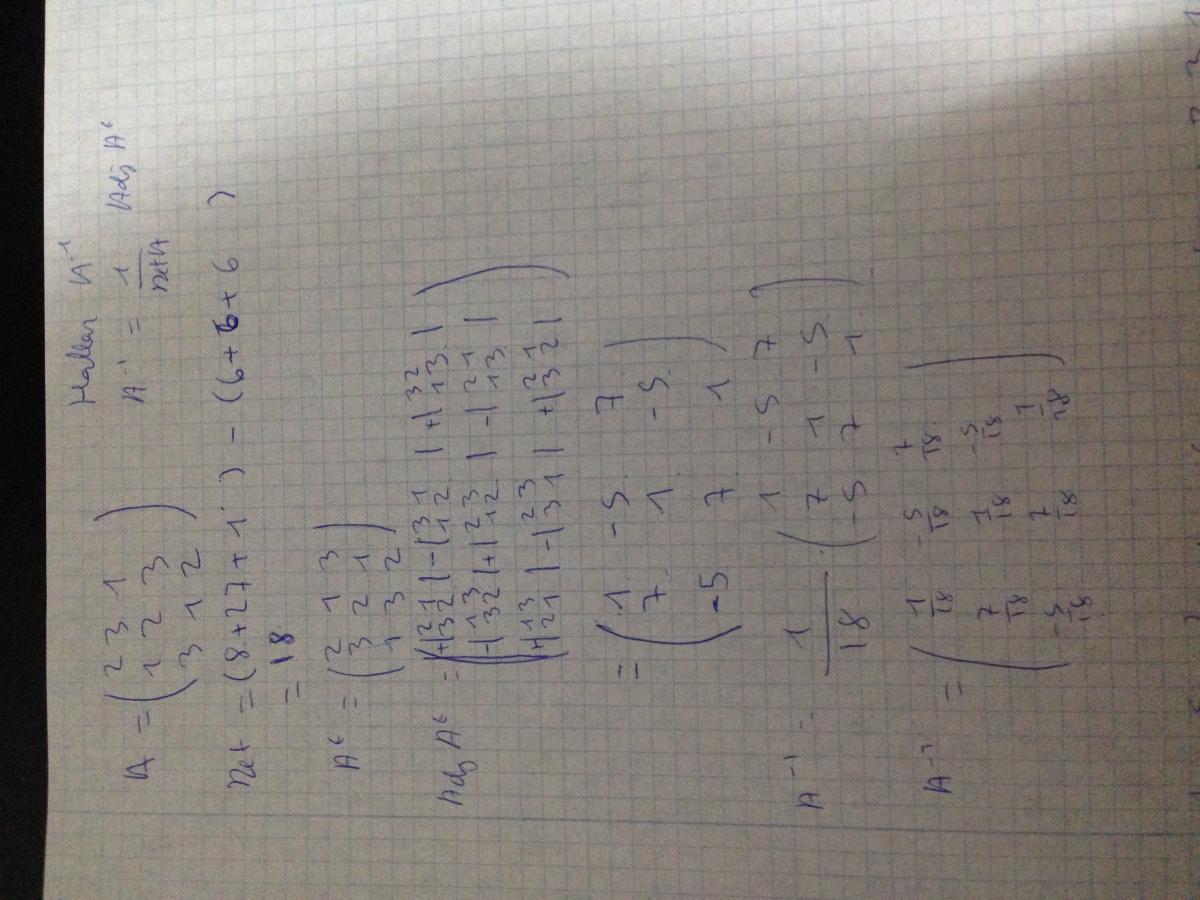 Hallar A⁻¹
A = (2 3 1
1 2 3
3 1 2)
A⁻¹ = 1/Det A Adj Aᵗ
Det = (8+27+1) - (6+6+6)
= 18
Aᵗ = (2 1 3
3 2 1
1 3 2)
Adj Aᵗ = (+|2 1 / 3 2| -|3 1 / 1 2| +|3 2 / 1 3|
-|1 3 / 3 2| +|2 3 / 1 2| -|2 1 / 1 3|
+|1 3 / 2 1| -|2 3 / 3 1| +|2 1 / 3 2|)
= (1 -5 7
7 1 -5
-5 7 1)
A⁻¹ = 1/18 (1 -5 7
7 1 -5
-5 7 1)
A⁻¹ = (1/18 -5/18 7/18
7/18 1/18 -5/18
-5/18 7/18 1/18)